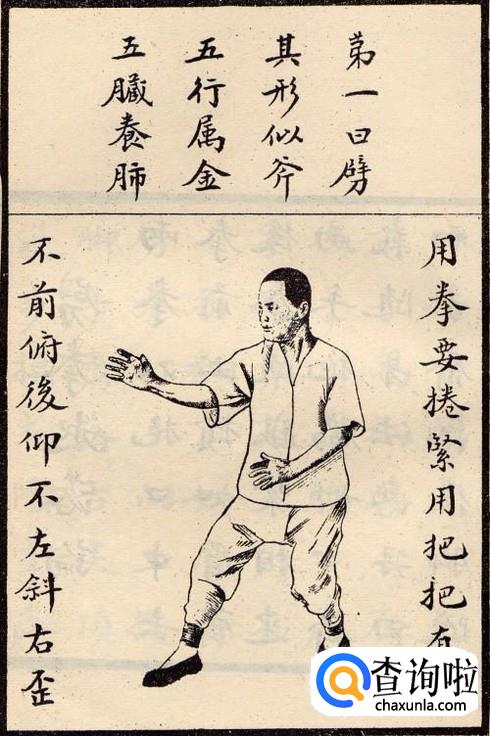 第一曰劈
其形似斧
五行属金
五臓養肺
用拳要捲緊用把把有
不前俯後仰不左斜右歪
查询啦
chaxunla.com